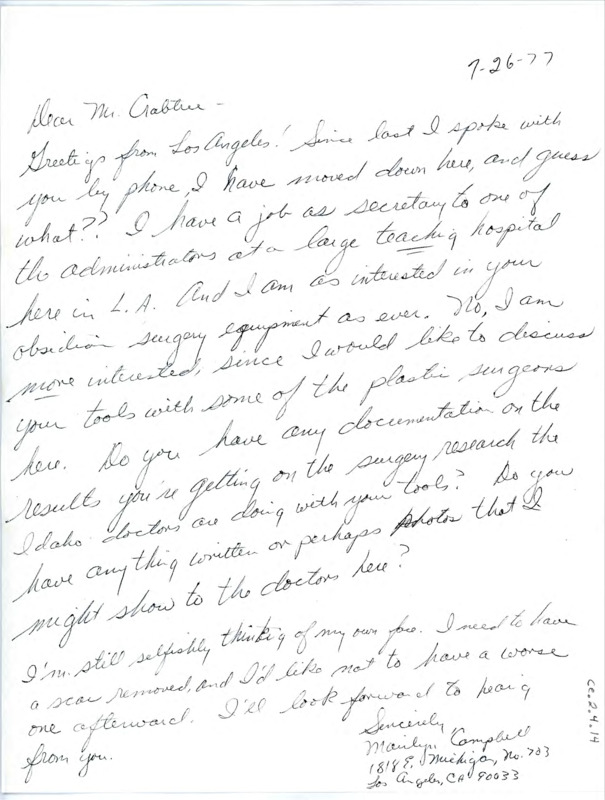 7-26-77
Dear Mr. Crabtree -
Greetings from Los Angeles! Since last I spoke with
you by phone, I have moved down here, and guess
what?? I have a job as secretary to one of
the administrators at a large teaching hospital
here in L.A. And I am as interested in your
obsidian surgery equipment as ever. No, I am
more interested, since I would like to discuss
your tools with some of the plastic surgeons
here. Do you have any documentation on the
results you're getting on the surgery research the
Idaho doctors are doing with your tools? Do you
have anything written or perhaps photos that I
might show to the doctors here?
I'm still selfishly thinking of my own face. I need to have
a scar removed, and I'd like not to have a worse
one afterward. I'll look forward to hearing
from you.
Sincerely,
Marilyn Campbell
1818 E. Michigan, No. 703
Los Angeles, CA 90033
cc.2.4.14